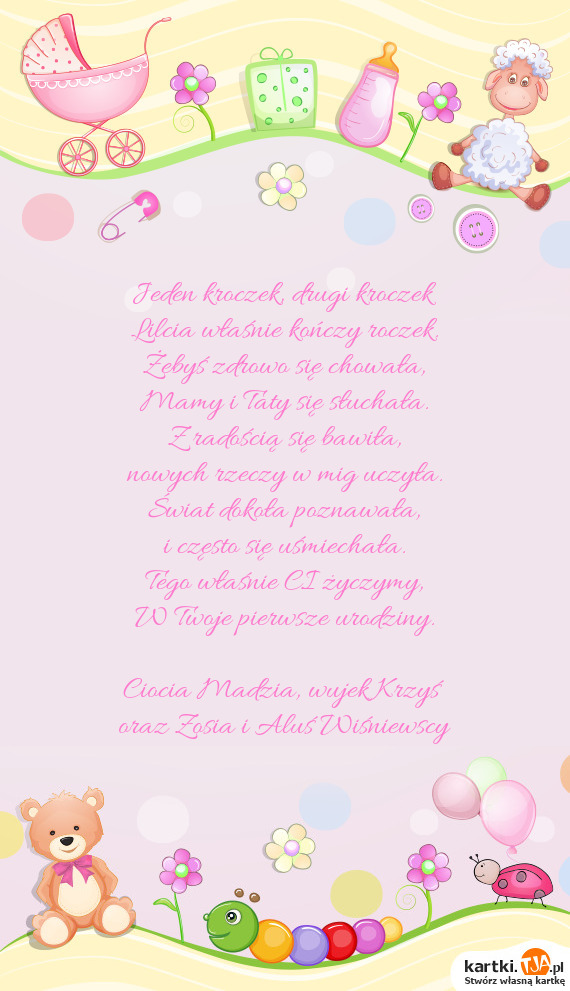 Jeden kroczek, drugi kroczek
Lilcia właśnie kończy roczek.
Żebyś zdrowo się chowała,
Mamy i Taty się słuchała.
Z radością się bawiła,
nowych rzeczy w mig uczyła.
Świat dokoła poznawała,
i często się uśmiechała.
Tego właśnie CI życzymy,
W Twoje pierwsze urodziny.
Ciocia Madzia, wujek Krzyś
oraz Zosia i Aluś Wiśniewscy
kartki.TJA.pl
Stwórz własną kartkę